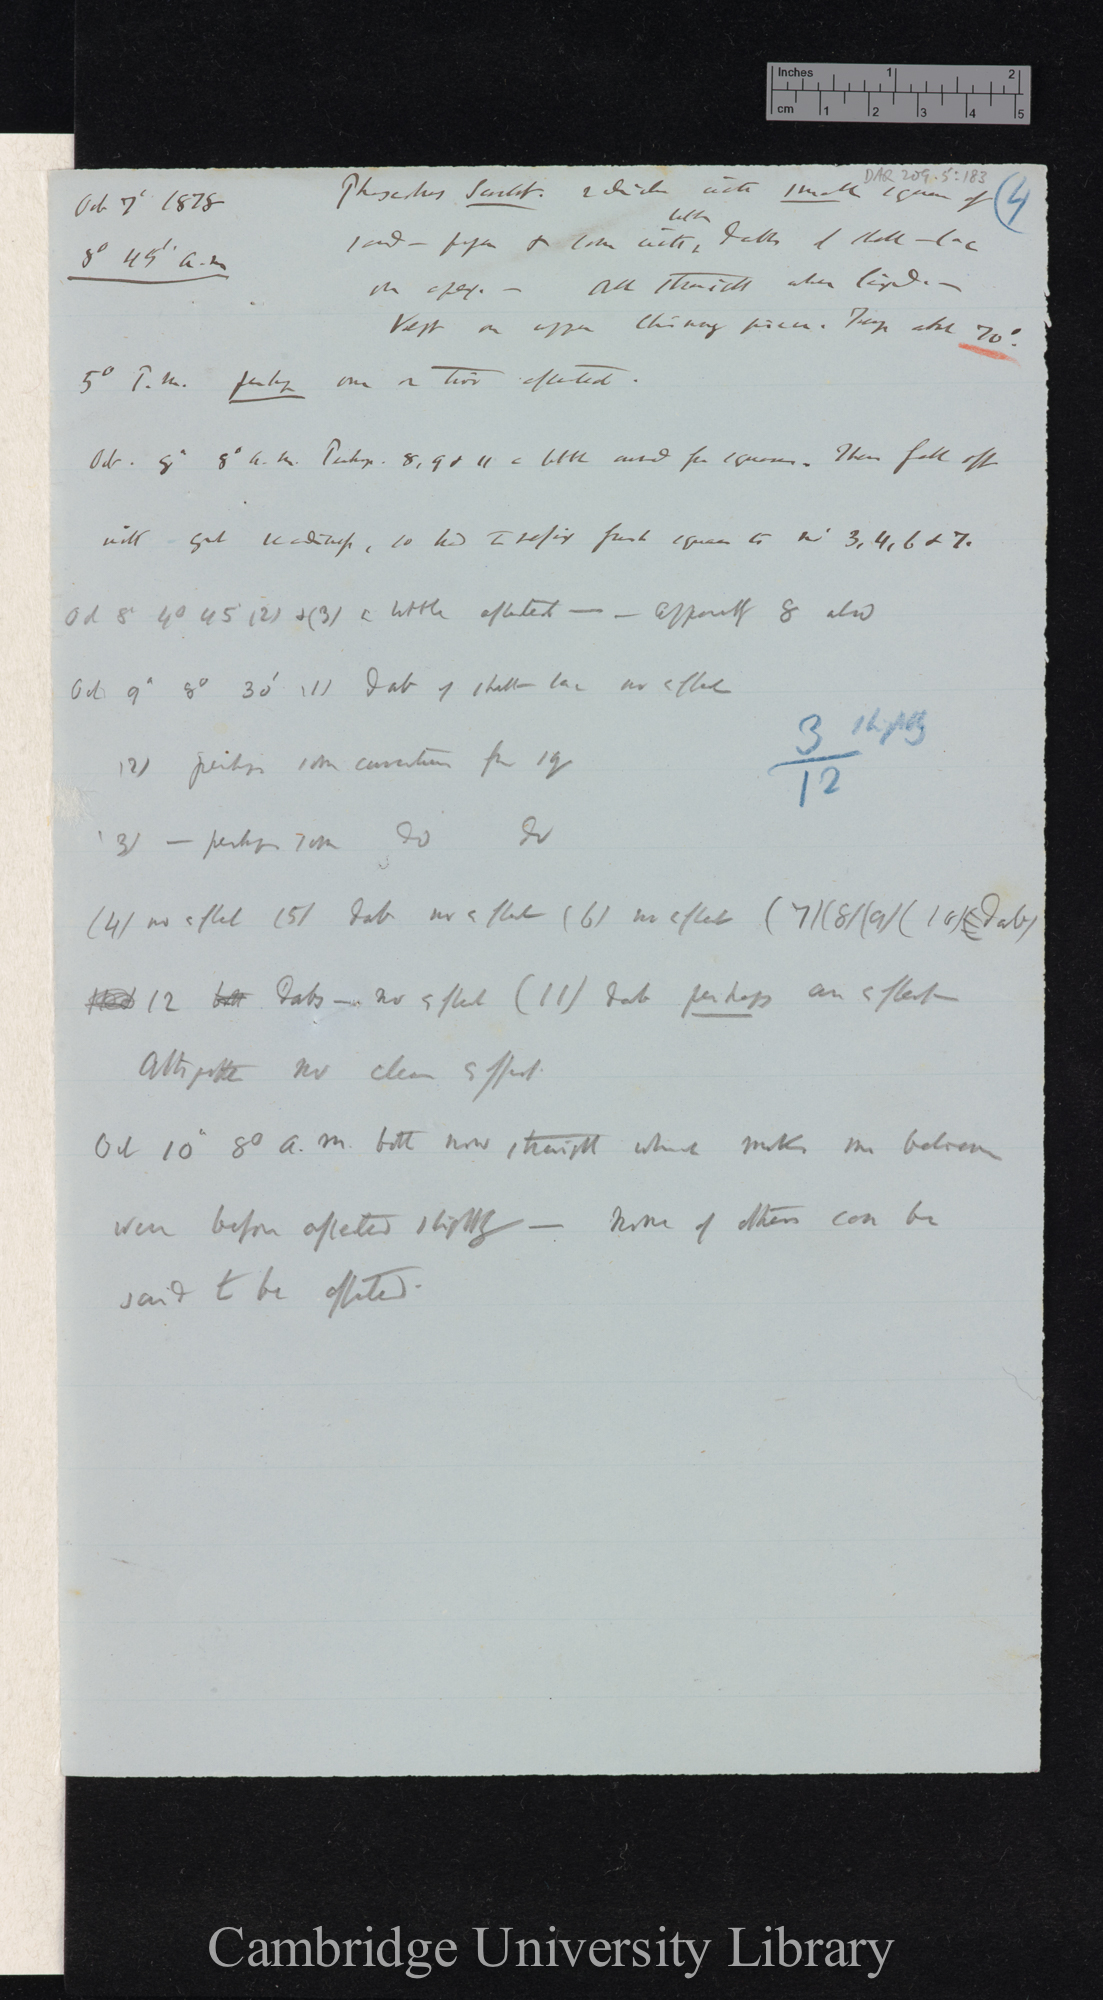 Inches 1 2
cm 1 2 3 4 5
DAR 209.5:183
(4
Oct 7' 1878
8° 45' a.m
Phaseolus Scarlet. radicles with small squares of
sand-paper & some with little dabs of shell-lac
on apex. — All straight when
Kept on upper chimney piece. Temp about 70°.
5° P.m. perhaps one or two affected.
Oct. 8° 8° a.m. Perhaps. 8, 9 & 11 a little curved from squares. These fall off
with great so had to refix fresh squares to no 3, 4, 6 & 7.
Oct 8 4° 45 (2) & (3) a little affected — — apparently 8 also
Oct 9° 8° 30' (1) Dab of shell-lac no effect
(2) perhaps some curvature from sq
3
12
slightly
(3) — perhaps some do do
(4) no effect (5) dab no effect (6) no effect (7)(8)(9)(10) Dabs)
12 Dabs — no effect (11) dab perhaps an effect
Altogether no clear effect.
Oct 10° 8° a.m. both now straight which makes me believe
were before affected slightly — None of others can be
said to be affected.
Cambridge University Library